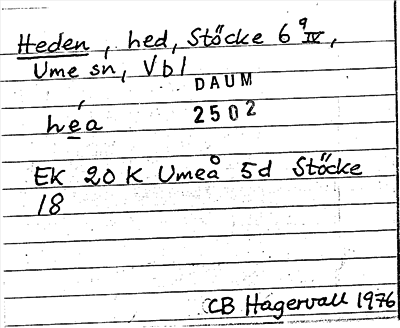 Heden, hed, Stöcke 6 9/IV,
Ume sn, Vbl
DAUM
2502
héa
EK 20 K Umeå 5d Stöcke
18
CB Hagervall 1976